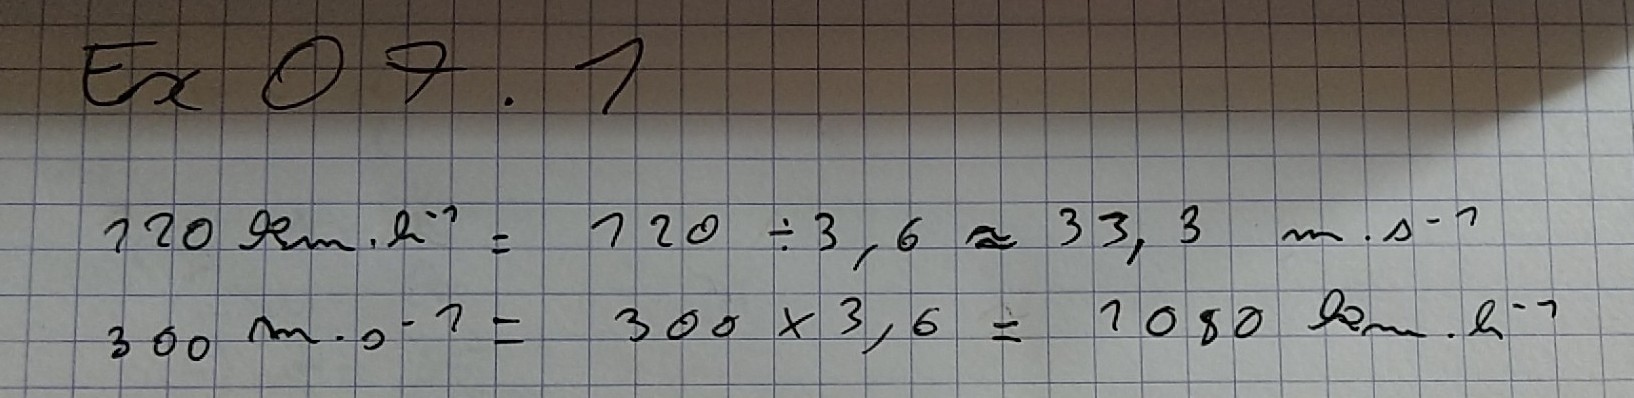 Ex 07.1
120 km.h⁻¹ = 120 ÷ 3,6 ≈ 33,3 m.s⁻¹
300 m.s⁻¹ = 300 × 3,6 = 1080 km.h⁻¹